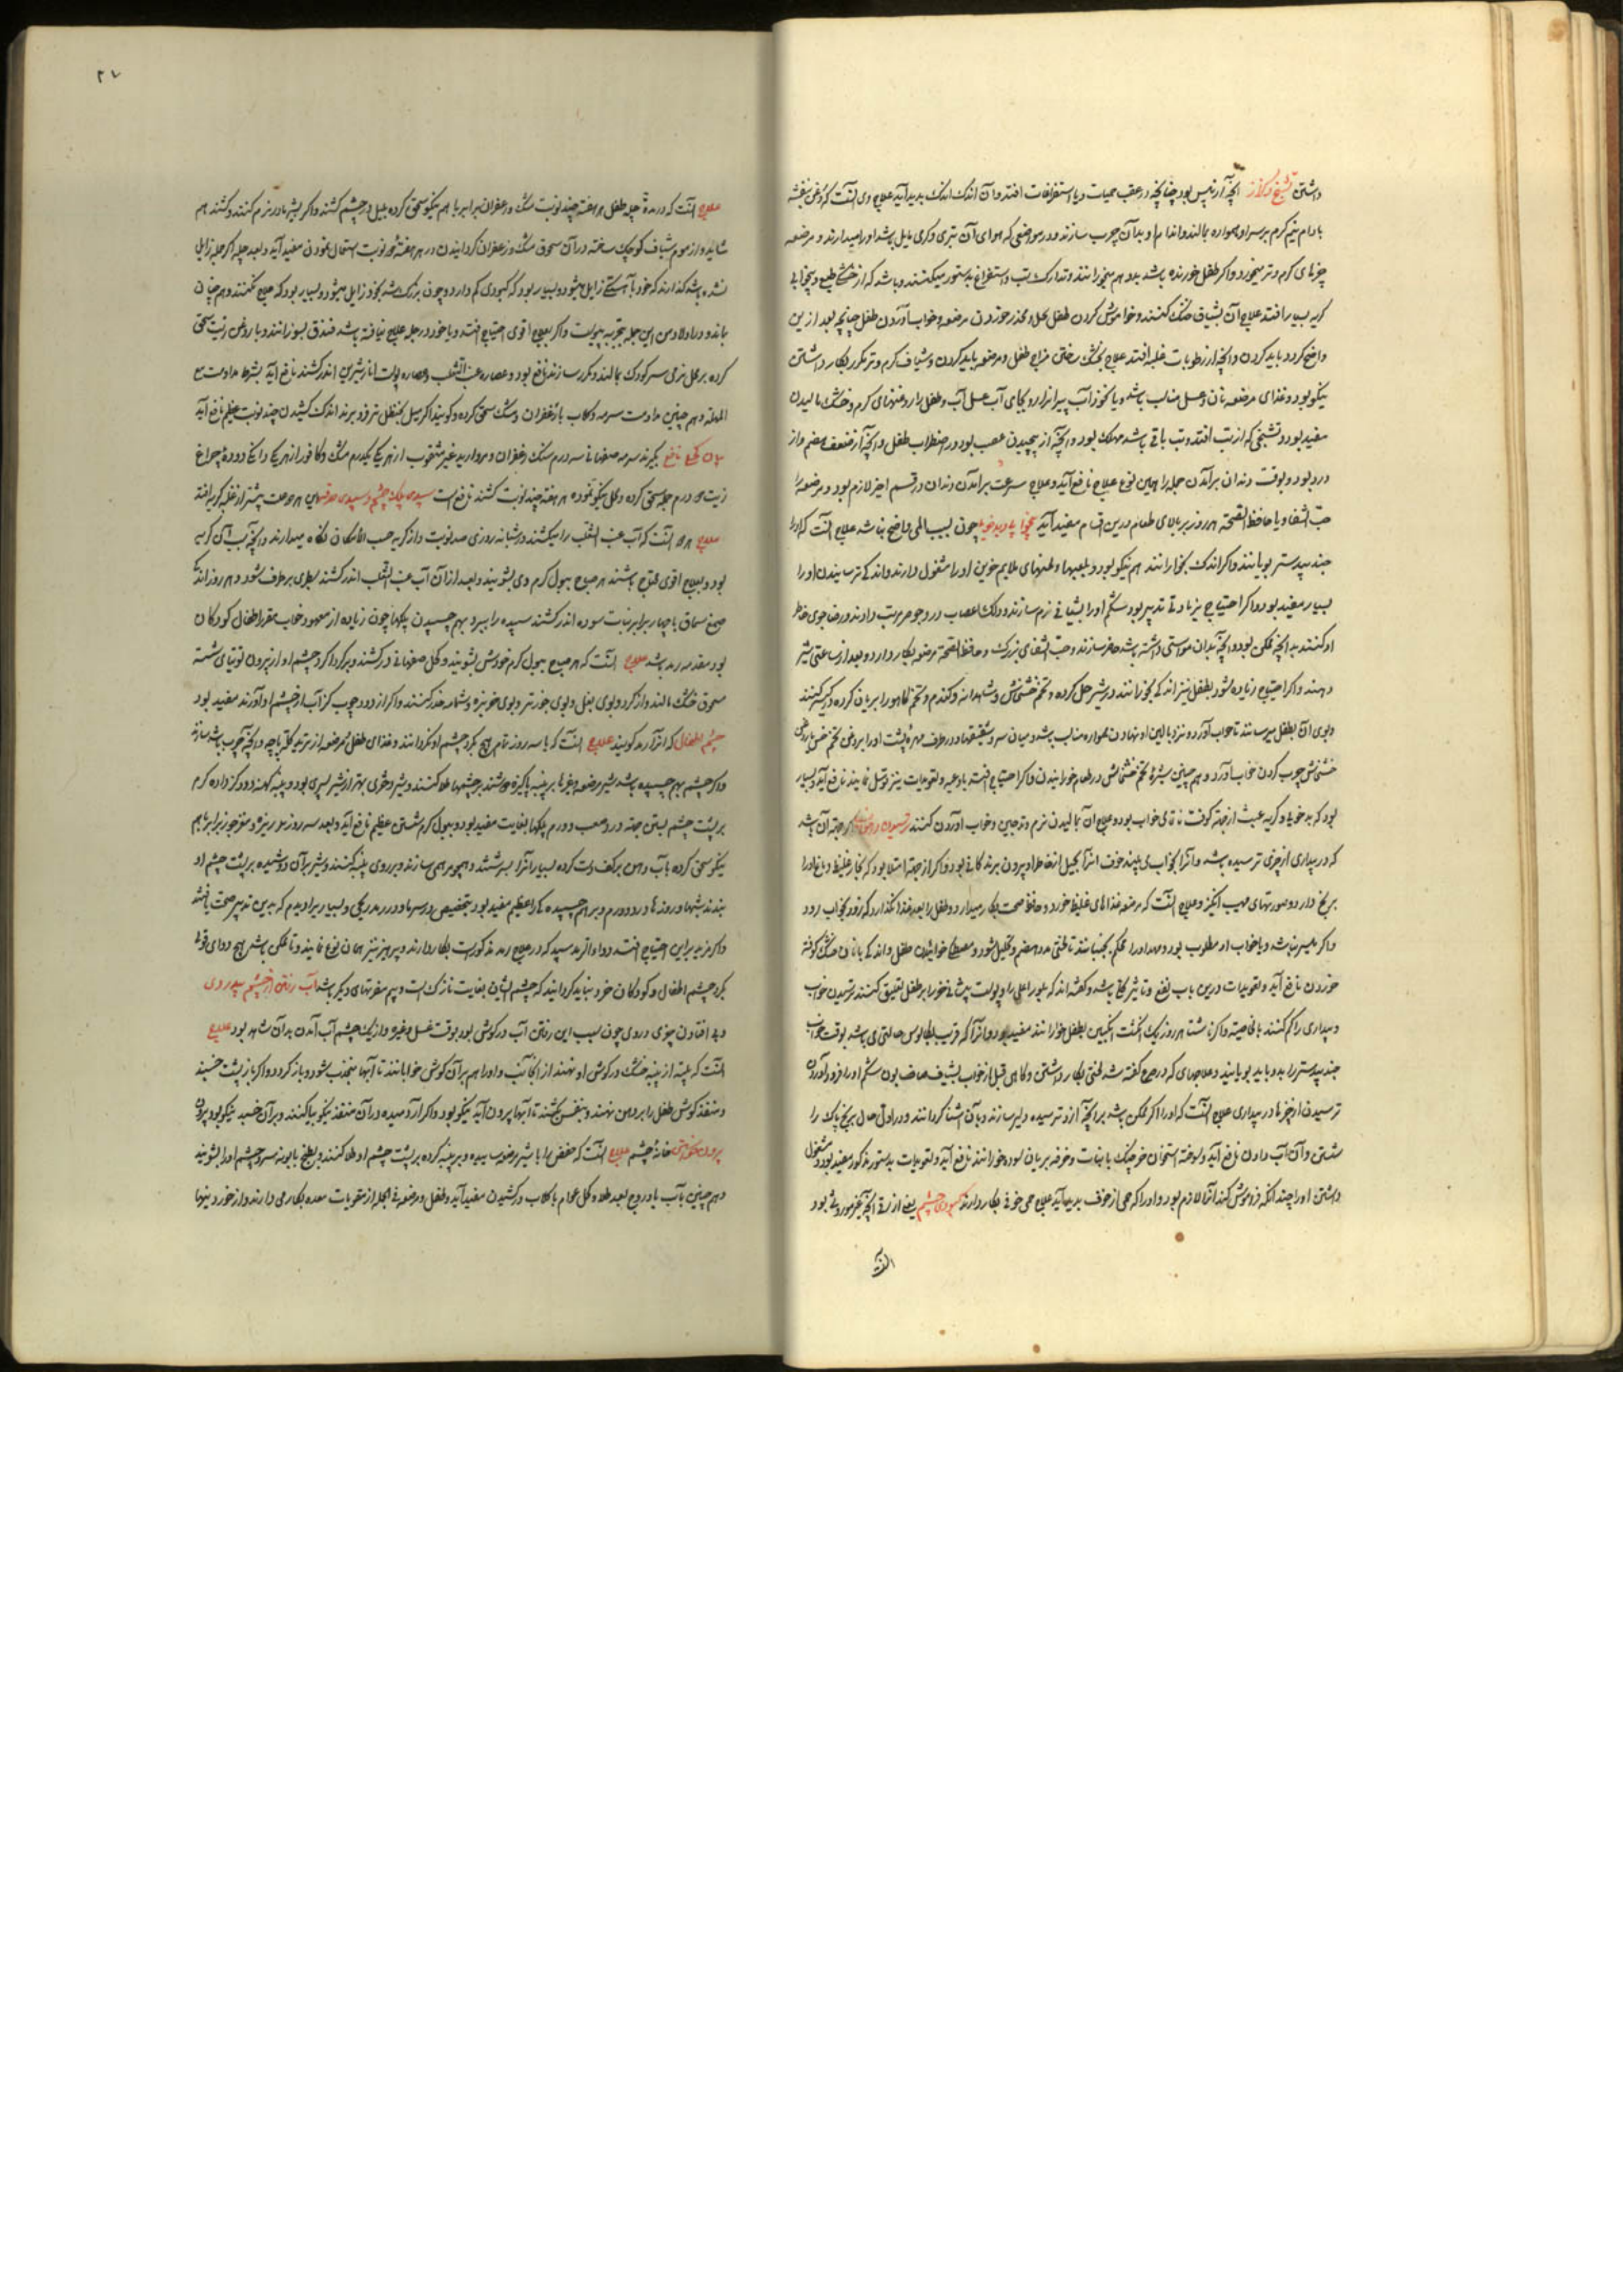 داشتن تشنج و کزاز آنچه از یبس بود چنانچه در عقب حمیات و یا استفراغات افتد و آن اندک اندک پدید آید علاج وی آنست که روغن بنفشه
بادام نیم گرم بر سر او همواره بمالند و اندام او بدان چرب سازند و در موضعی که هوای آن بتری و گرمی مایل باشد او را میدارند و مرضعه
چیزهای گرم و تر میخورد و اگر طفل خورنده باشد بدو هم میخورانند و تدارک تب و استفراغ بدستور میکنند و باشد که از خشکی طبع و بیخوابی
گریه بسیار افتد علاج آن بشیاف خنک کنند و خاموش کردن طفل و مخدر خوردن مرضعه و خواب آوردن طفل چنانچه بعد ازین
واضح گردد باید کردن و آنچه از رطوبات غلبه افتد علاج بخشک ساختن مزاج طفل و مرضعه باید کردن و شیاف گرم و تر مکرر بکار داشتن
نیکو بود و غذای مرضعه نان و عسل مناسب باشد و یا نخود آب پیرافزار و بجای آب عسل آب و طفل را روغنهای گرم و خشک مالیدن
مفید بود و تشنجی که از تب افتد و تب باقی باشد مهلک بود و آنچه از پیچیدن عصب بود در اضطراب طفل و آنچه از ضعف هضم و از
درد بود و بوقت دندان برآمدن جمله را همین نوع علاج نافع آید و علاج سرعت برآمدن دندان در قسم اخیر لازم بود و مرضعه را
حب الشفا و یا حافظ الصحة هر روز بر بالای طعام درین اقسام مفید آید بیخوابی و بدخویی چون بسبب المی واضح نباشد علاج آنست که او را
جندبیدستر بویانند و اگر اندک بخورانند هم نیکو بود و بلعبها و لحنهای ملایم خوش او را مشغول دارند و اندکی ترسانیدن او را
بسیار مفید بود و اگر احتیاج بزیادتی تدبیر بود شکم او را بشیافی نرم سازند
او کنند بدانچه ممکن بود و آنچه بدان مواسی داشته باشد حاضر سازند و حب الشفای بزرگ و حافظ الصحة مرضعه بکار دارد و بعد از ساعتی شیر
دهند و اگر احتیاج زیاده شود بطفل نیز اندکی بخورانند در شیر حل کرده و تخم خشخاش و شاهدانه و گندم و تخم کاهو را بریان کرده
و بوی آن بطفل میرسانند تا خواب آورد و نزد بالین او نهادن همواره مناسب باشد و میان سر و شقیقها و در طرف مهره پشت او را بروغن تخم خس یا روغن
خشخاش چرب کردن خواب آورد و همچنین شیره تخم خشخاش در طعام خورانیدن و اگر احتیاج افتد بادعیه و تعویذات نیز توسل نمایند نافع آید و بسیار
بود که بدخویی و گریه عبث از جهت کوفت ناتمامی خواب بود و علاج آن بمالیدن نرم و خواب آوردن کنند ترسیدن در خواب اگر جهت آن باشد
که در بیداری از چیزی ترسیده باشد و آنرا بخواب می بیند خوف آنرا بحیل از خاطر او بیرون برند کافی بود و اگر از جهت امتلا بود که بخار غلیظ دماغ او را
برنج دارد و صورتهای مهیب انگیزد علاج آنست که مرضعه غذاهای غلیظ نخورد و حافظ صحت بکار میدارد و طفل را بعد غذا نگذارد که زود بخواب رود
و اگر میسر نباشد و یا خواب او مطلوب بود مهد او را محکم بجنبانند تا طعام هضم و تحلیل شود
خوردن نافع آید و تعویذات درین باب نفع و تاثیر کلی باشد و گفته اند که بلور اعلی را و پوست پیشانی خر را بر طفل تعلیق کنند ترسیدن خواب
و بیداری را کم کنند بالخاصیه و اگر ناشتا هر روز یک انگشت انگبین بطفل خورانند مفید بود و آنرا که قریب بکابوس حالتی می باشد بوقت خواب
جندبیدستر را بدو باید بویانید و علاجهای که در صرع گفته شد لختی بکار داشتن و گاهی قبل از خواب بشیاف صابون شکم او را فرود آوردن
ترسیدن از چیزها در بیداری علاج آنست که او را اگر ممکن باشد بر آنچه ازو ترسیده دلیر سازند و بآن آشنا گردانند و در اول حال برنج پاک را
شستن و آن آب دادن نافع آید و سوخته استخوان خرچنگ با نبات و خرفه بریان سوده خورانند نافع آید و تعویذات بدستور مذکور مفید بود و مشغول
داشتن او را چندانکه فراموش کند آنرا لازم بود و او را که حمی از خوف پدید آید علاج حمی خوفی بکار دارند کبودی چشم یعنی ازرقی آنچه غیر موروثی بود
آنست
۲۷
علاج آنست که در مدة چله طفل هر هفته چند نوبت مشک و زعفران برابر با هم نیکو سحق کرده بمیل در چشم کشند و اگر بشیر مادر نرم کنند و کشند هم
شاید و از موم شیاف کوچک ساخته در آن سحوق مشک و زعفران گردانیدن و در هر هفته نوبت استعمال نمودن مفید آید و بعد چله اگر جمله زایل
نشده باشد گذارند که خود بآهستگی زایل میشود و بسیار بود که کبودی کم دارد و چون بزرگ شد بخود زایل میشود و بسیار بود که علاج نکنند و همچنان
بماند و در اولاد من این جمله بتجربه پیوست و اگر بعلاج اقوی احتیاج افتد و یا خود در چله علاج نیافته باشد فندق بسوزانند و با روغن زیت سحق
کرده بر محل نرمی سر کودک بمالند و مکرر سازند نافع بود و عصاره عنب الثعلب و عصاره پوست انار شیرین اندر کشند نافع آید بشرط مداومت مع
المبالغه و همچنین مداومت سرمه و گلاب با زعفران و مشک سحق کرده و گویند اگر میل بحنظل تر فرو برند و اندک کشیدن چند نوبت عظیم نافع آید
کحلی نافع بگیرند سرمه صفهانی سه درم مشک و زعفران و مروارید غیر مثقوب از هر یکی یکدرم مشک و کافور از هر یکی دانگی دوده چراغ
زیت درم جمله سحق کرده و کحل نیکو نموده هر هفته چند نوبت کشند نافع است سپیدی پلک چشم و سپیدی حدقه این هر دو علت بیشتر از غلبه گریه افتد
علاج هر دو آنست که آب عنب الثعلب را میکشند در شبانه روزی صد نوبت و از گریه حسب الامکان نگاه میدارند و آنچه بسبب گریه
بود و بعلاج اقوی محتاج باشند هر صباح ببول گرم وی بشویند و بعد از آن آب عنب الثعلب اندر کشند بطری برطرف شود و هر روز اندکی
صمغ سماق با چهار برابر نبات سوده اندر کشند سپیده را ببرد بهم چسپیدن پلکها چون زیاده از معهود خواب مقرر اطفال و کودکان
بود مقدمه رمد باشد علاج آنست که هر صباح ببول گرم خودش بشویند و کحل صفهانی درکشند و بر گرداگرد چشم او از بیرون توتیای شسته
مسحوق خشک مالند و از گرد و بوی بغل و بوی خون تر و بوی خربزه و شمامه حذر کنند و اگر از دود چوب گز آب از چشم او آورند مفید بود
چشم اطفال که آنرا رمد گویند علاج آنست که تا سه روز تمام هیچ گرد چشم او نگردانند و غذای طفل و مرضعه از ترید کله پاچه و آنچه چرب باشد سازند
و اگر چشم بهم چسپیده باشد شیر مرضعه و غیرها بر پنبه پاکیزه دوشند بر چشمها طلا کنند و شیر دختری بهتر از شیر پسری بود و پنبه کهنه دود گز داده گرم
بر پشت چشم بستن جهت درد صعب و ورم پلکها بغایت مفید بود و ببول گرم شستن عظیم نافع آید و بعد سه روز مویزه و مغز جوز برابر با هم
نیکو سحق کرده بآب دهن بر کف دست کرده بسیار آنرا بسرشند و همچو مرهمی سازند و بر روی پنبه کنند و شیر بر آن دوشیده بر پشت چشم او
بندند شبها و روزها و درد و ورم و بهم چسپیدگی را عظیم مفید بود بتخصیص در سرما و در رمد ریحی و بسیار برا دیدم که بدین تدبیر صحت یافتند
و اگر مزید برین احتیاج افتد دوا و از رمد سپید که در علاج رمد مذکور است بکار دارند و پرهیز نیز همان نوع نمایند و تا ممکن باشد هیچ دوای قوی
بگرد چشم اطفال و کودکان خرد نباید گردانید که چشم ایشان بغایت نازک است و بیم مضرتهای دیگر باشد آب رفتن از چشم بی دردی
و بی افتادن چیزی در وی چون سبب این رفتن آب در گوش بود بوقت غسل و غیره و از یک چشم آب آمدن بدان شاهد بود علاج
آنست که پلیته از پنبه خشک در گوش او نهند از آنجانب و او را هم بر آن گوش خوابانند تا آبها منجذب شود و باز گردد و اگر باز پشت خسبند
و منفذ گوش طفل را بر دهن نهند و بنفس بکشند تا آبها بیرون آید نیکو بود و اگر آرد میده در آن منفذ نیکو پیا کنند و بر آن خسبد نیکو بود
بیرون خاستن خانه چشم علاج آنست که حضض را با شیر مرضعه ساییده و بر پنبه کرده بر پشت چشم او طلا کنند و بطبخ بابونه سر و چشم او را بشویند
و همچنین بآب بادروج بعد طلاء کحل عوام با گلاب درکشیدن مفید آید و طفل و مرضعه فی الجمله از مقویات معده بکار می دارند و از خوردنیها